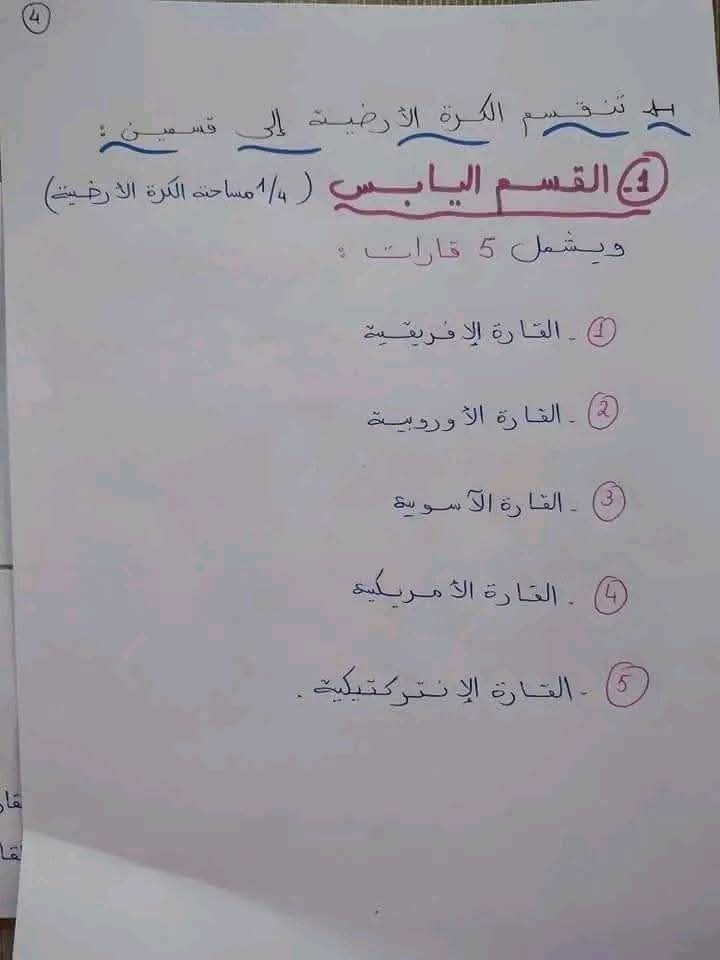 4
* تنقسم الكرة الأرضية إلى قسمين :
1. القسم اليابس ( 1/4 مساحة الكرة الأرضية )
ويشمل 5 قارات :
1 - القارة الإفريقية
2 - القارة الأوروبية
3 - القارة الآسوية
4 - القارة الأمريكية
5 - القارة الإنتركتيكية .